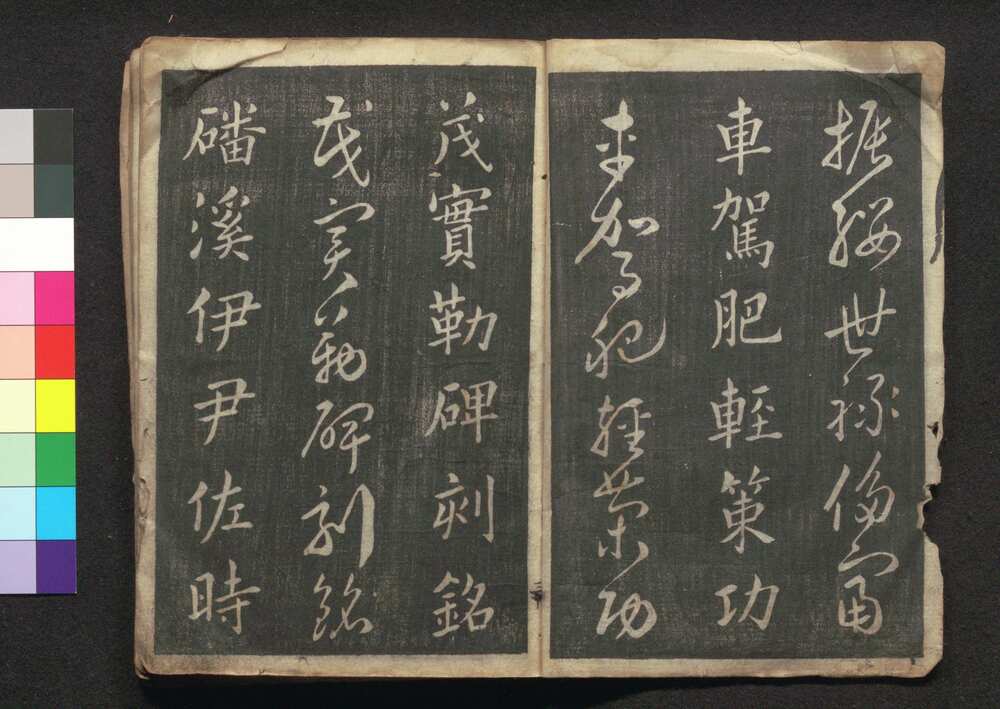 振纓世祿侈富
車駕肥輕策功
車駕肥輕策功
茂實勒碑刻銘
茂實勒碑刻銘
磻溪伊尹佐時